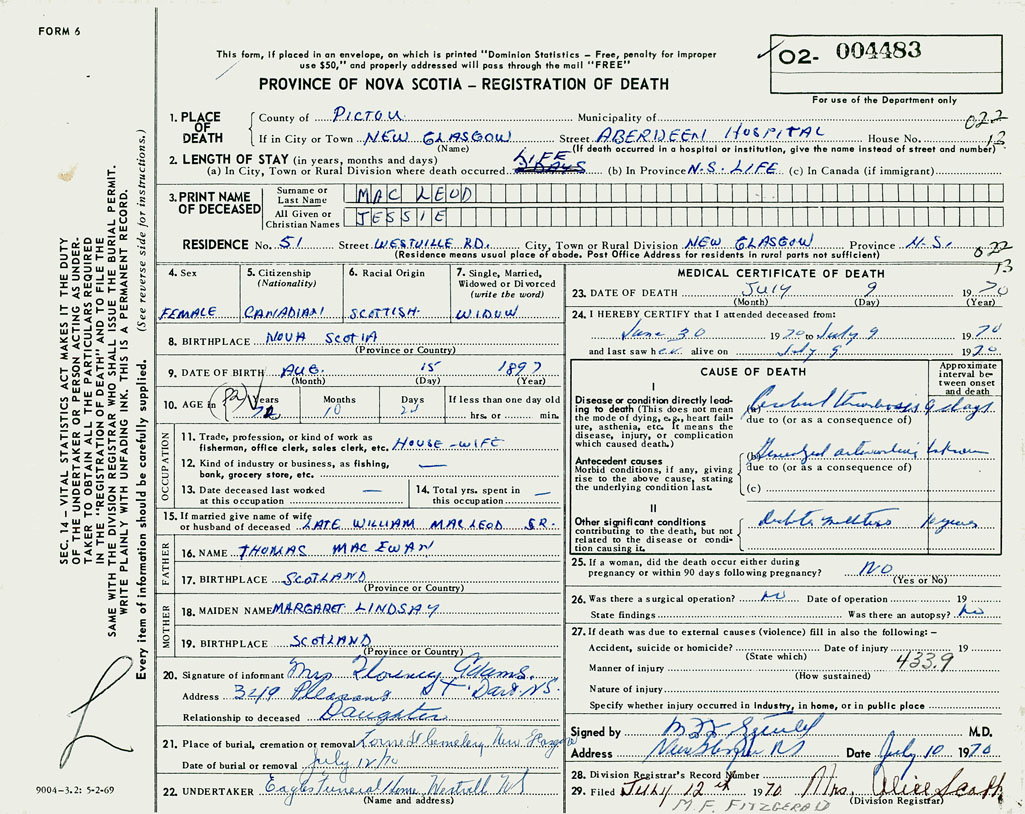 FORM 6
This form, if placed in an envelope, on which is printed "Dominion Statistics – Free, penalty for improper
use $50," and properly addressed will pass through the mail "FREE"
PROVINCE OF NOVA SCOTIA – REGISTRATION OF DEATH
02- 004483
For use of the Department only
1. PLACE OF DEATH
County of PICTOU Municipality of 022
If in City or Town NEW GLASGOW Street ABERDEEN HOSPITAL House No. 13
(Name) (If death occurred in a hospital or institution, give the name instead of street and number)
2. LENGTH OF STAY (in years, months and days)
(a) In City, Town or Rural Division where death occurred LIFE (b) In Province N.S. LIFE (c) In Canada (if immigrant)
3. PRINT NAME OF DECEASED
Surname or Last Name MAC LEOD
All Given or Christian Names JESSIE
RESIDENCE No. 51 Street WESTVILLE RD. City, Town or Rural Division NEW GLASGOW Province N.S.
(Residence means usual place of abode. Post Office Address for residents in rural parts not sufficient) 022
13
4. Sex
FEMALE
5. Citizenship (Nationality)
CANADIAN
6. Racial Origin
SCOTTISH
7. Single, Married, Widowed or Divorced (write the word)
WIDOW
8. BIRTHPLACE NOVA SCOTIA
(Province or Country)
9. DATE OF BIRTH AUG. 15 1897
(Month) (Day) (Year)
10. AGE in Years Months Days If less than one day old
72 10 hrs. or min.
OCCUPATION
11. Trade, profession, or kind of work as
fisherman, office clerk, sales clerk, etc. HOUSE-WIFE
12. Kind of industry or business, as fishing,
bank, grocery store, etc. —
13. Date deceased last worked
at this occupation —
14. Total yrs. spent in
this occupation —
15. If married give name of wife
or husband of deceased LATE WILLIAM MAC LEOD SR.
FATHER
16. NAME THOMAS MAC EWAN
17. BIRTHPLACE SCOTLAND
(Province or Country)
MOTHER
18. MAIDEN NAME MARGARET LINDSAY
19. BIRTHPLACE SCOTLAND
(Province or Country)
20. Signature of informant Mrs Adams
Address 349 Pleasant St. Dart. N.S.
Relationship to deceased Daughter
21. Place of burial, cremation or removal Cemetery New Glasgow
Date of burial or removal July 12/70
22. UNDERTAKER Eagles Funeral Home Westville NS
(Name and address)
MEDICAL CERTIFICATE OF DEATH
23. DATE OF DEATH July 9 1970
(Month) (Day) (Year)
24. I HEREBY CERTIFY that I attended deceased from:
June 30 1970 to July 9 1970
and last saw her alive on July 9 1970
CAUSE OF DEATH
Approximate interval between onset and death
I
Disease or condition directly leading to death (This does not mean the mode of dying, e.g., heart failure, asthenia, etc. It means the disease, injury, or complication which caused death.)
(a) Cerebral thrombosis 9 days
due to (or as a consequence of)
Antecedent causes
Morbid conditions, if any, giving rise to the above cause, stating the underlying condition last.
(b) Generalized unknown
due to (or as a consequence of)
(c)
II
Other significant conditions contributing to the death, but not related to the disease or condition causing it.
diabetes mellitus
25. If a woman, did the death occur either during
pregnancy or within 90 days following pregnancy? NO
(Yes or No)
26. Was there a surgical operation? No Date of operation 19
State findings Was there an autopsy? No
27. If death was due to external causes (violence) fill in also the following: –
Accident, suicide or homicide? Date of injury 19
(State which) 433.9
Manner of injury
(How sustained)
Nature of injury
Specify whether injury occurred in industry, in home, or in public place
Signed by M.D.
Address New Glasgow NS Date July 10 1970
28. Division Registrar's Record Number
29. Filed July 12th 1970 Mrs. Alice
M. F. FITZGERALD (Division Registrar)
SEC. 14 – VITAL STATISTICS ACT MAKES IT THE DUTY
OF THE UNDERTAKER OR PERSON ACTING AS UNDER-
TAKER TO OBTAIN ALL THE PARTICULARS REQUIRED
IN THE "REGISTRATION OF DEATH" AND TO FILE THE
SAME WITH THE DIVISION REGISTRAR WHO SHALL ISSUE THE BURIAL PERMIT.
WRITE PLAINLY WITH UNFADING INK. THIS IS A PERMANENT RECORD.
Every item of information should be carefully supplied. (See reverse side for instructions.)
9004–3.2: 5-2-69